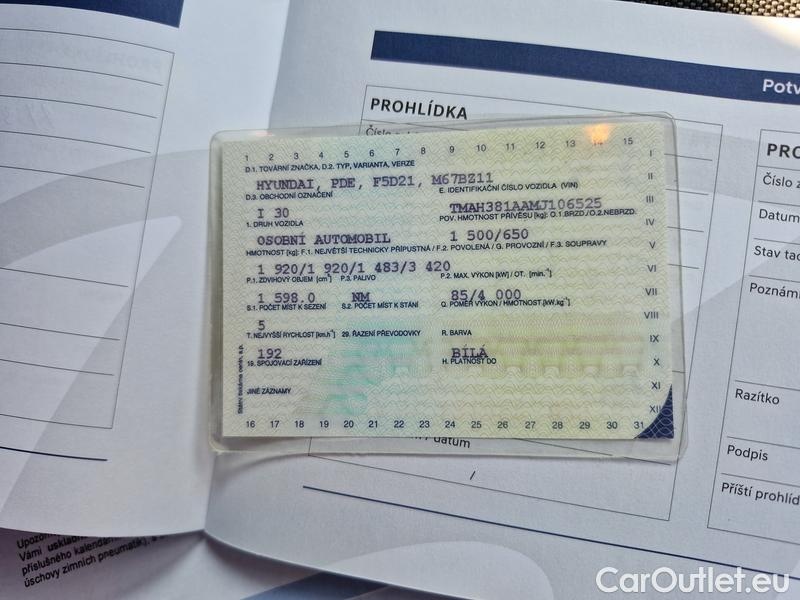 Potv
PROHLÍDKA
1 2 3 4 5 6 7 8 9 10 11 12 13 14 15
D.1. TOVÁRNÍ ZNAČKA, D.2. TYP, VARIANTA, VERZE
HYUNDAI, PDE, F5D21, M67BZ11
D.3. OBCHODNÍ OZNAČENÍ E. IDENTIFIKAČNÍ ČÍSLO VOZIDLA (VIN)
I 30 TMAH381AAMJ106525
1. DRUH VOZIDLA POV. HMOTNOST PŘÍVĚSU [kg]: O.1.BRZD./O.2.NEBRZD.
OSOBNÍ AUTOMOBIL 1 500/650
HMOTNOST [kg]: F.1. NEJVĚTŠÍ TECHNICKY PŘÍPUSTNÁ / F.2. POVOLENÁ / G. PROVOZNÍ / F.3. SOUPRAVY
1 920/1 920/1 483/3 420
P.1. ZDVIHOVÝ OBJEM [cm³] P.3. PALIVO P.2. MAX. VÝKON [kW] / OT. [min.⁻¹]
1 598.0 NM 85/4 000
S.1. POČET MÍST K SEZENÍ S.2. POČET MÍST K STÁNÍ Q. POMĚR VÝKON / HMOTNOST [kW.kg⁻¹]
5
T. NEJVYŠŠÍ RYCHLOST [km.h⁻¹] 29. ŘAZENÍ PŘEVODOVKY R. BARVA
192 BÍLÁ
19. SPOJOVACÍ ZAŘÍZENÍ H. PLATNOST DO
JINÉ ZÁZNAMY
16 17 18 19 20 21 22 23 24 25 26 27 28 29 30 31
I
II
III
IV
V
VI
VII
VIII
IX
X
XI
XII
Státní tiskárna cenin, s.p.
datum
/
PRO
Číslo z
Datum
Stav tac
Poznámi
Razítko
Podpis
Příští prohlíd
Upozorn
Vámi uskladn
příslušného kalendářn
úschovy zimních pneumatik), a
CarOutlet.eu